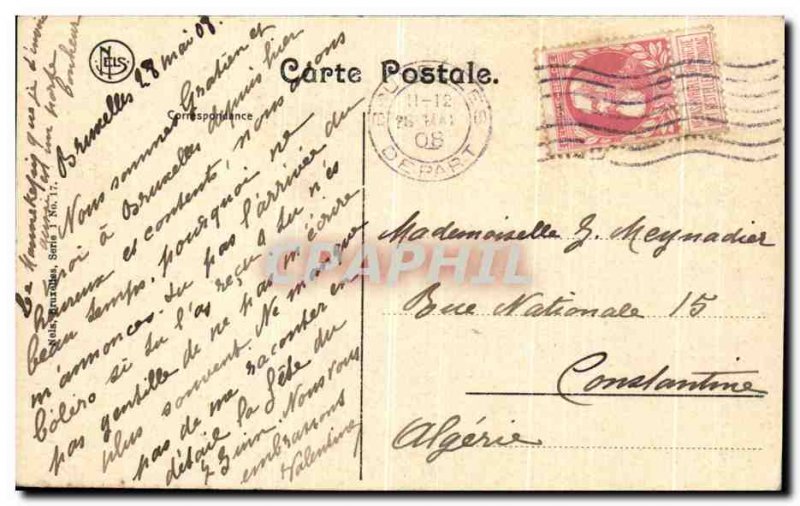 Carte Postale.
NELS
Correspondance
Bruxelles 28 mai 08.
Nous sommes Gratien et
moi à Bruxelles depuis hier
heureux et contents, nous avons
beau temps. pourquoi ne
m'annonces-tu pas l'arrivée du
boléro si tu l'as reçu, tu n'es
pas gentille de ne pas m'écrire
plus souvent. Ne manque
pas de me raconter en
détail la fête du
7 Juin. Nous vous
embrassons
Valentine
Le Mannekepis que je t'envoie
un porte
bonheur
Nels, Bruxelles, Serie 1 No. 17.
BRUXELLES
11-12
28 MAI
08
DEPART
CPAPHIL
Mademoiselle J. Meynadier
Rue Nationale 15
Constantine
Algérie